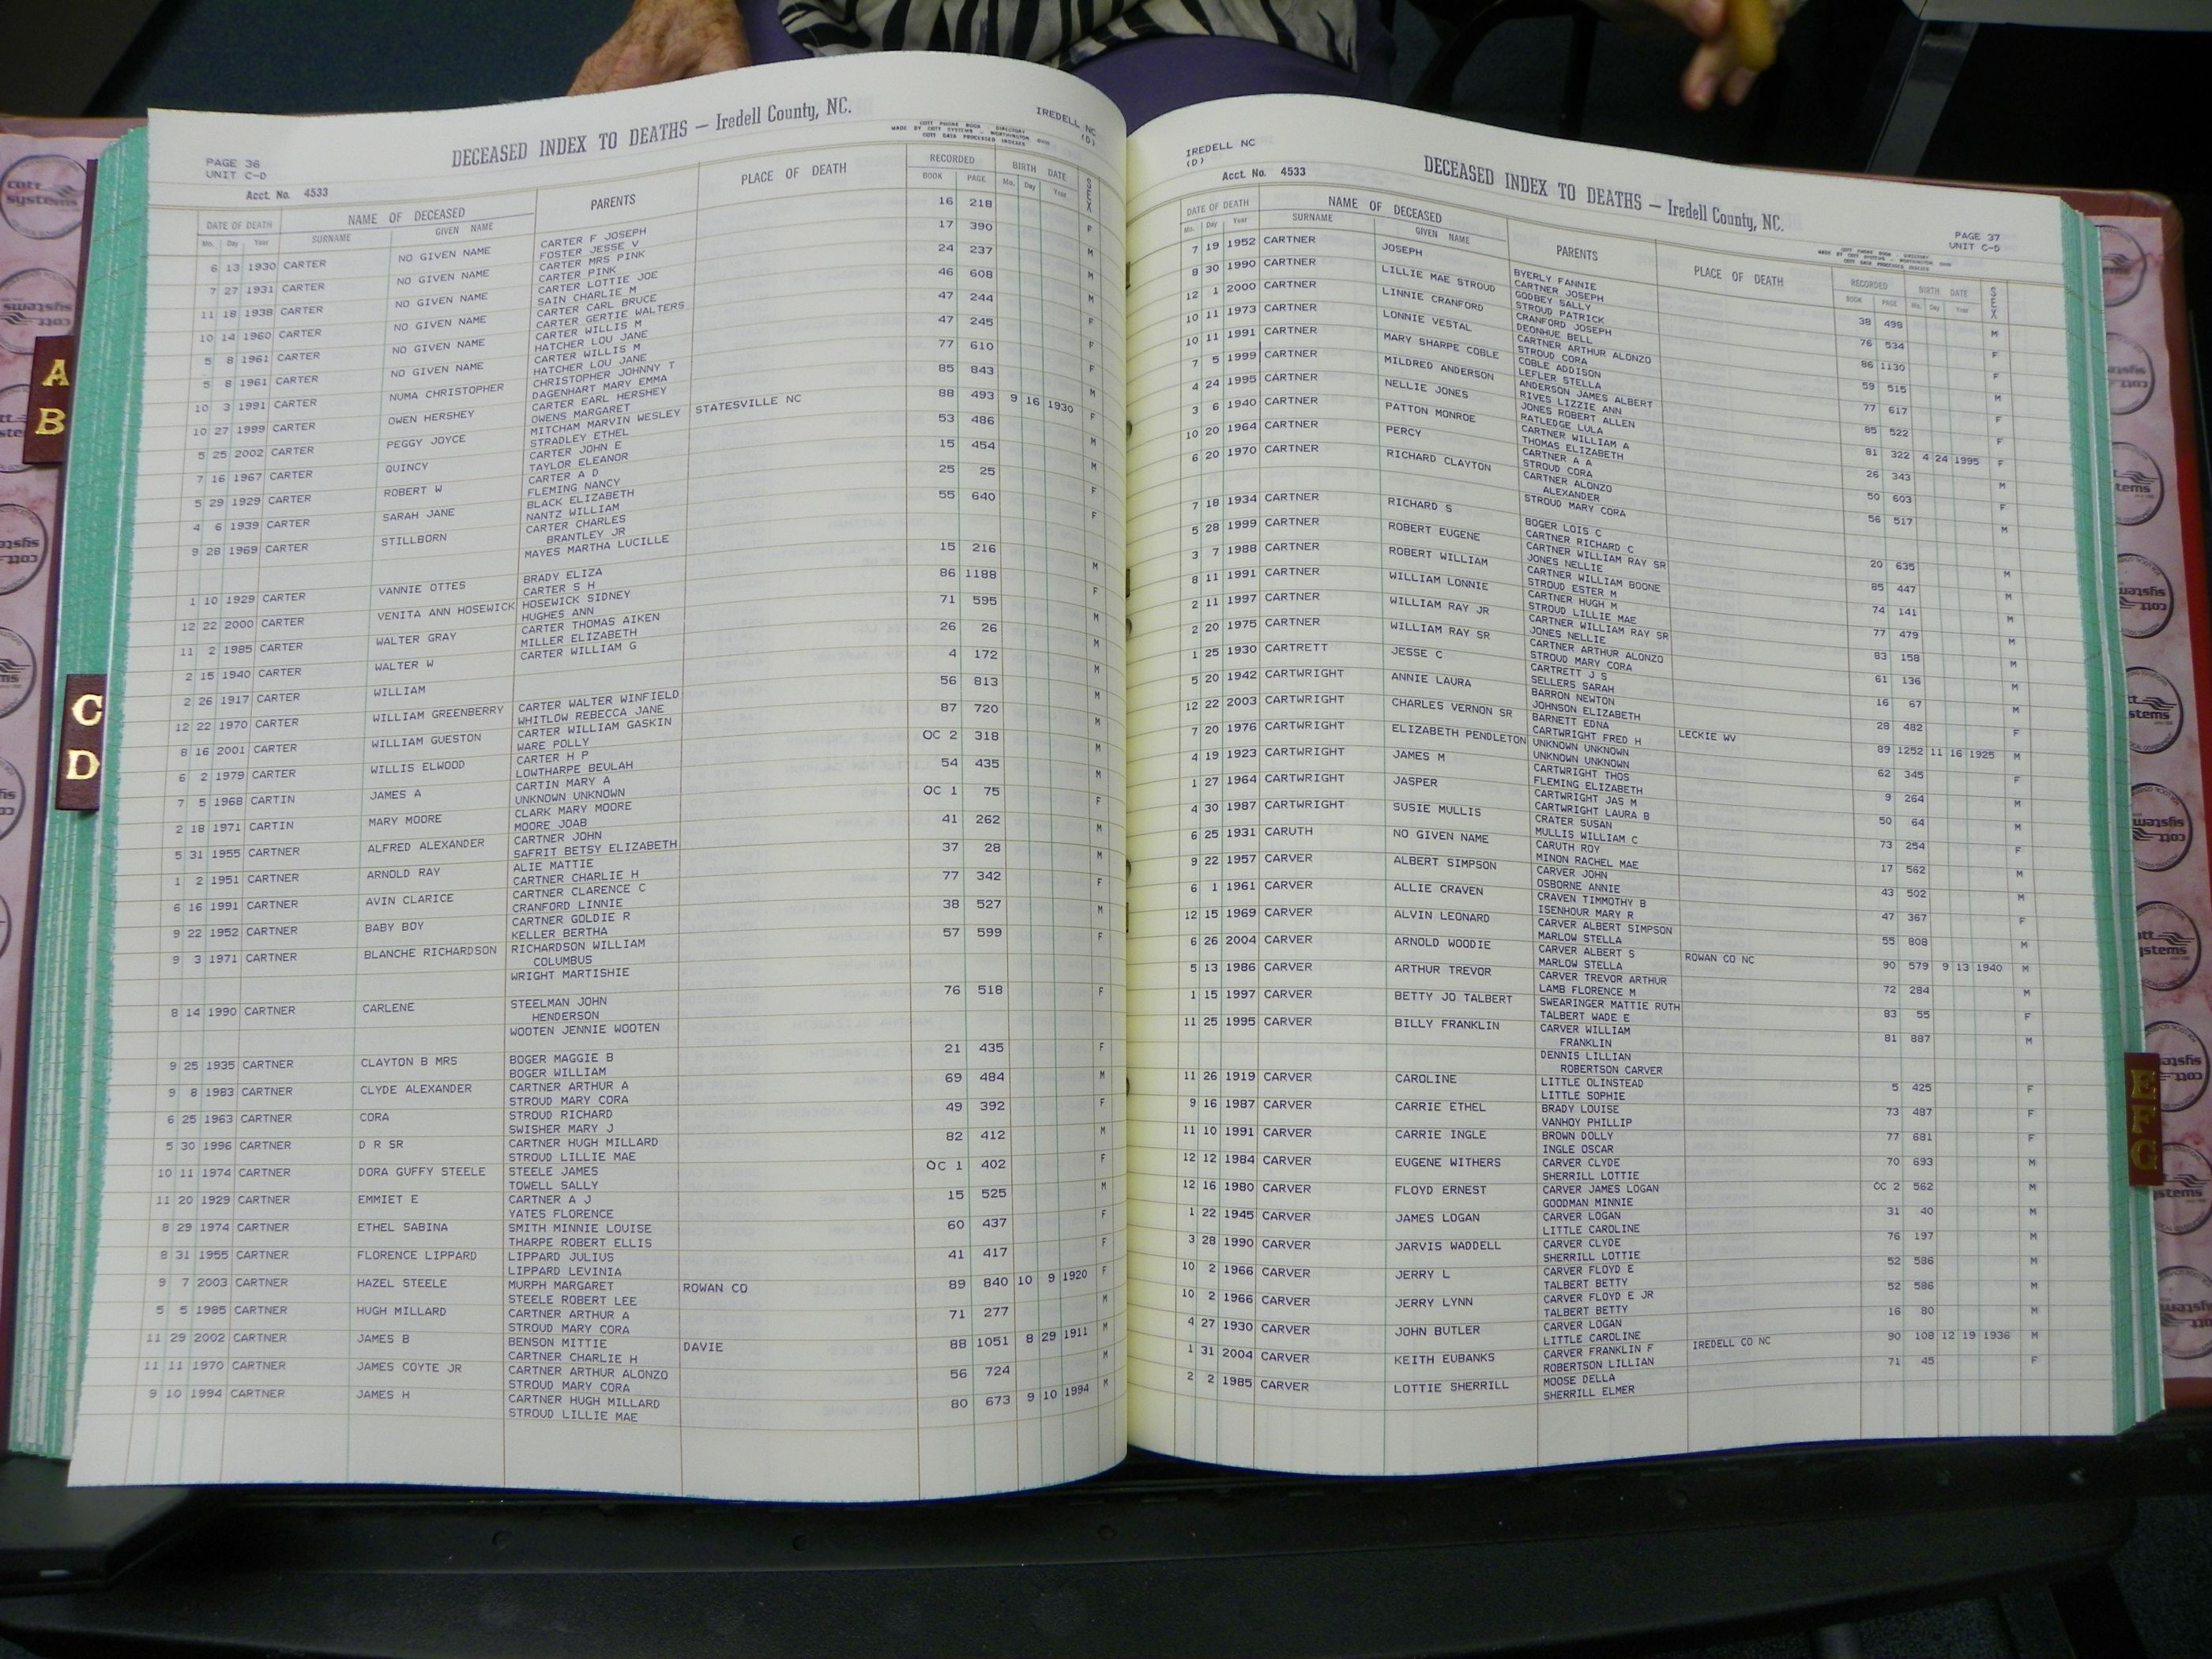 PAGE 36
UNIT C-D
Acct. No. 4533
DECEASED INDEX TO DEATHS — Iredell County, NC.
COTT PHONE BOOK DIRECTORY
MADE BY COTT SYSTEMS - WORTHINGTON OHIO
COTT DATA PROCESSED INDEXES
IREDELL NC
(D)
DATE OF DEATH NAME OF DECEASED PARENTS PLACE OF DEATH RECORDED BIRTH DATE SEX
Mo. Day Year SURNAME GIVEN NAME BOOK PAGE Mo. Day Year
6 13 1930 CARTER NO GIVEN NAME CARTER F JOSEPH 16 218 F
FOSTER JESSE V
7 27 1931 CARTER NO GIVEN NAME CARTER MRS PINK 17 390 M
CARTER PINK
11 18 1938 CARTER NO GIVEN NAME CARTER LOTTIE JOE 24 237 M
SAIN CHARLIE M
10 14 1960 CARTER NO GIVEN NAME CARTER CARL BRUCE 46 608 M
CARTER GERTIE WALTERS
5 8 1961 CARTER NO GIVEN NAME CARTER WILLIS M 47 244 F
HATCHER LOU JANE
5 8 1961 CARTER NO GIVEN NAME CARTER WILLIS M 47 245 F
HATCHER LOU JANE
10 3 1991 CARTER NUMA CHRISTOPHER CHRISTOPHER JOHNNY T 77 610 F
DAGENHART MARY EMMA
10 27 1999 CARTER OWEN HERSHEY CARTER EARL HERSHEY 85 843 M
OWENS MARGARET
5 25 2002 CARTER PEGGY JOYCE MITCHAM MARVIN WESLEY STATESVILLE NC 88 493 9 16 1930 F
STRADLEY ETHEL
7 16 1967 CARTER QUINCY CARTER JOHN E 53 486 M
TAYLOR ELEANOR
5 29 1929 CARTER ROBERT W CARTER A D 15 454 M
FLEMING NANCY
4 6 1939 CARTER SARAH JANE BLACK ELIZABETH 25 25 F
NANTZ WILLIAM
9 28 1969 CARTER STILLBORN CARTER CHARLES 55 640 F
BRANTLEY JR
MAYES MARTHA LUCILLE
1 10 1929 CARTER VANNIE OTTES BRADY ELIZA 15 216 M
CARTER S H
12 22 2000 CARTER VENITA ANN HOSEWICK HOSEWICK SIDNEY 86 1188 F
HUGHES ANN
11 2 1985 CARTER WALTER GRAY CARTER THOMAS AIKEN 71 595 M
MILLER ELIZABETH
2 15 1940 CARTER WALTER W CARTER WILLIAM G 26 26 M
2 26 1917 CARTER WILLIAM 4 172 M
12 22 1970 CARTER WILLIAM GREENBERRY CARTER WALTER WINFIELD 56 813 M
WHITLOW REBECCA JANE
8 16 2001 CARTER WILLIAM GUESTON CARTER WILLIAM GASKIN 87 720 M
WARE POLLY
6 2 1979 CARTER WILLIS ELWOOD CARTER H P OC 2 318 M
LOWTHARPE BEULAH
7 5 1968 CARTIN JAMES A CARTIN MARY A 54 435 M
UNKNOWN UNKNOWN
2 18 1971 CARTIN MARY MOORE CLARK MARY MOORE OC 1 75 F
MOORE JOAB
5 31 1955 CARTNER ALFRED ALEXANDER CARTNER JOHN 41 262 M
SAFRIT BETSY ELIZABETH
1 2 1951 CARTNER ARNOLD RAY ALIE MATTIE 37 28 M
CARTNER CHARLIE H
6 16 1991 CARTNER AVIN CLARICE CARTNER CLARENCE C 77 342 F
CRANFORD LINNIE
9 22 1952 CARTNER BABY BOY CARTNER GOLDIE R 38 527 M
KELLER BERTHA
9 3 1971 CARTNER BLANCHE RICHARDSON RICHARDSON WILLIAM 57 599 F
COLUMBUS
WRIGHT MARTISHIE
8 14 1990 CARTNER CARLENE STEELMAN JOHN 76 518 F
HENDERSON
WOOTEN JENNIE WOOTEN
9 25 1935 CARTNER CLAYTON B MRS BOGER MAGGIE B 21 435 F
BOGER WILLIAM
9 8 1983 CARTNER CLYDE ALEXANDER CARTNER ARTHUR A 69 484 M
STROUD MARY CORA
6 25 1963 CARTNER CORA STROUD RICHARD 49 392 F
SWISHER MARY J
5 30 1996 CARTNER D R SR CARTNER HUGH MILLARD 82 412 M
STROUD LILLIE MAE
10 11 1974 CARTNER DORA GUFFY STEELE STEELE JAMES OC 1 402 F
TOWELL SALLY
11 20 1929 CARTNER EMMIET E CARTNER A J 15 525 M
YATES FLORENCE
8 29 1974 CARTNER ETHEL SABINA SMITH MINNIE LOUISE 60 437 F
THARPE ROBERT ELLIS
8 31 1955 CARTNER FLORENCE LIPPARD LIPPARD JULIUS 41 417 F
LIPPARD LEVINIA
9 7 2003 CARTNER HAZEL STEELE MURPH MARGARET ROWAN CO 89 840 10 9 1920 F
STEELE ROBERT LEE
5 5 1985 CARTNER HUGH MILLARD CARTNER ARTHUR A 71 277 M
STROUD MARY CORA
11 29 2002 CARTNER JAMES B BENSON MITTIE DAVIE 88 1051 8 29 1911 M
CARTNER CHARLIE H
11 11 1970 CARTNER JAMES COYTE JR CARTNER ARTHUR ALONZO 56 724 M
STROUD MARY CORA
9 10 1994 CARTNER JAMES H CARTNER HUGH MILLARD 80 673 9 10 1994 M
STROUD LILLIE MAE
IREDELL NC
(D)
Acct. No. 4533
DECEASED INDEX TO DEATHS — Iredell County, NC.
PAGE 37
UNIT C-D
COTT PHONE BOOK DIRECTORY
MADE BY COTT SYSTEMS - WORTHINGTON OHIO
COTT DATA PROCESSED INDEXES
DATE OF DEATH NAME OF DECEASED PARENTS PLACE OF DEATH RECORDED BIRTH DATE SEX
Mo. Day Year SURNAME GIVEN NAME BOOK PAGE Mo. Day Year
7 19 1952 CARTNER JOSEPH BYERLY FANNIE 38 498 M
CARTNER JOSEPH
8 30 1990 CARTNER LILLIE MAE STROUD GODBEY SALLY 76 534 F
STROUD PATRICK
12 1 2000 CARTNER LINNIE CRANFORD CRANFORD JOSEPH 86 1130 F
DEONHUE BELL
10 11 1973 CARTNER LONNIE VESTAL CARTNER ARTHUR ALONZO 59 515 M
STROUD CORA
10 11 1991 CARTNER MARY SHARPE COBLE COBLE ADDISON 77 617 F
LEFLER STELLA
7 5 1999 CARTNER MILDRED ANDERSON ANDERSON JAMES ALBERT 85 522 F
RIVES LIZZIE ANN
4 24 1995 CARTNER NELLIE JONES JONES ROBERT ALLEN 81 322 4 24 1995 F
RATLEDGE LULA
3 6 1940 CARTNER PATTON MONROE CARTNER WILLIAM A 26 343 M
THOMAS ELIZABETH
10 20 1964 CARTNER PERCY CARTNER A A 50 603 F
STROUD CORA
6 20 1970 CARTNER RICHARD CLAYTON CARTNER ALONZO 56 517 M
ALEXANDER
STROUD MARY CORA
7 18 1934 CARTNER RICHARD S BOGER LOIS C 20 635 M
CARTNER RICHARD C
5 28 1999 CARTNER ROBERT EUGENE CARTNER WILLIAM RAY SR 85 447 M
JONES NELLIE
3 7 1988 CARTNER ROBERT WILLIAM CARTNER WILLIAM BOONE 74 141 M
STROUD ESTER M
8 11 1991 CARTNER WILLIAM LONNIE CARTNER HUGH M 77 479 M
STROUD LILLIE MAE
2 11 1997 CARTNER WILLIAM RAY JR CARTNER WILLIAM RAY SR 83 158 M
JONES NELLIE
2 20 1975 CARTNER WILLIAM RAY SR CARTNER ARTHUR ALONZO 61 136 M
STROUD MARY CORA
1 25 1930 CARTRETT JESSE C CARTRETT J S 16 67 M
SELLERS SARAH
5 20 1942 CARTWRIGHT ANNIE LAURA BARRON NEWTON 28 482 F
JOHNSON ELIZABETH
12 22 2003 CARTWRIGHT CHARLES VERNON SR BARNETT EDNA LECKIE WV 89 1252 11 16 1925 M
CARTWRIGHT FRED H
7 20 1976 CARTWRIGHT ELIZABETH PENDLETON UNKNOWN UNKNOWN 62 345 F
UNKNOWN UNKNOWN
4 19 1923 CARTWRIGHT JAMES M CARTWRIGHT THOS 9 264 M
FLEMING ELIZABETH
1 27 1964 CARTWRIGHT JASPER CARTWRIGHT JAS M 50 64 M
CARTWRIGHT LAURA B
4 30 1987 CARTWRIGHT SUSIE MULLIS CRATER SUSAN 73 254 F
MULLIS WILLIAM C
6 25 1931 CARUTH NO GIVEN NAME CARUTH ROY 17 562 M
MINON RACHEL MAE
9 22 1957 CARVER ALBERT SIMPSON CARVER JOHN 43 502 M
OSBORNE ANNIE
6 1 1961 CARVER ALLIE CRAVEN CRAVEN TIMMOTHY B 47 367 F
ISENHOUR MARY R
12 15 1969 CARVER ALVIN LEONARD CARVER ALBERT SIMPSON 55 808 M
MARLOW STELLA
6 26 2004 CARVER ARNOLD WOODIE CARVER ALBERT S ROWAN CO NC 90 579 9 13 1940 M
MARLOW STELLA
5 13 1986 CARVER ARTHUR TREVOR CARVER TREVOR ARTHUR 72 284 M
LAMB FLORENCE M
1 15 1997 CARVER BETTY JO TALBERT SWEARINGER MATTIE RUTH 83 55 F
TALBERT WADE E
11 25 1995 CARVER BILLY FRANKLIN CARVER WILLIAM 81 887 M
FRANKLIN
DENNIS LILLIAN
ROBERTSON CARVER
11 26 1919 CARVER CAROLINE LITTLE OLINSTEAD 5 425 F
LITTLE SOPHIE
9 16 1987 CARVER CARRIE ETHEL BRADY LOUISE 73 487 F
VANHOY PHILLIP
11 10 1991 CARVER CARRIE INGLE BROWN DOLLY 77 681 F
INGLE OSCAR
12 12 1984 CARVER EUGENE WITHERS CARVER CLYDE 70 693 M
SHERRILL LOTTIE
12 16 1980 CARVER FLOYD ERNEST CARVER JAMES LOGAN OC 2 562 M
GOODMAN MINNIE
1 22 1945 CARVER JAMES LOGAN CARVER LOGAN 31 40 M
LITTLE CAROLINE
3 28 1990 CARVER JARVIS WADDELL CARVER CLYDE 76 197 M
SHERRILL LOTTIE
10 2 1966 CARVER JERRY L CARVER FLOYD E 52 586 M
TALBERT BETTY
10 2 1966 CARVER JERRY LYNN CARVER FLOYD E JR 52 586 M
TALBERT BETTY
4 27 1930 CARVER JOHN BUTLER CARVER LOGAN 16 80 M
LITTLE CAROLINE
1 31 2004 CARVER KEITH EUBANKS CARVER FRANKLIN F IREDELL CO NC 90 108 12 19 1936 M
ROBERTSON LILLIAN
2 2 1985 CARVER LOTTIE SHERRILL MOOSE DELLA 71 45 F
SHERRILL ELMER
A
B
C
D
E
F
G
cott
systems